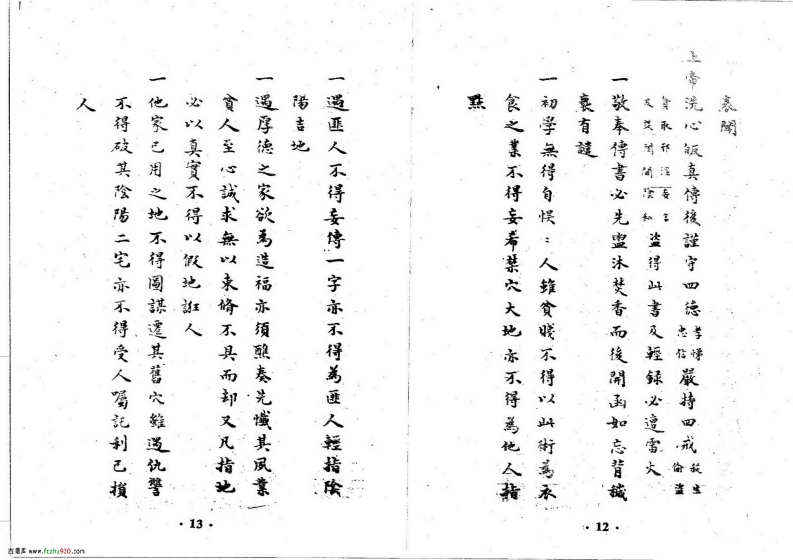 衷聞
上帝洗心皈真傳後謹守四德孝悌忠信嚴持四戒殺生偷盜
貪取邪淫妄言又焚聞聞陰私盜得此書及輕錄必遭雷火
一敬奉傳書必先盥沐焚香而後開函如忘背緘
衷有譴
一初學無得自悞:人雖貧賤不得以此術為衣
食之業不得妄希禁穴大地亦不得為他人指
點
·12·
一遇匪人不得妄傳一字亦不得為匪人輕指陰
陽吉地
一遇厚德之家欲為造福亦須醮奏先懺其夙業
貧人至心誠求無以束脩不具而却又凡指地
必以真實不得以假地誑人
一他家已用之地不得圖謀遷其舊穴雖遇仇讐
不得破其陰陽二宅亦不得受人囑託利己損
人
·13·
古籍库 www.fczhu920.com